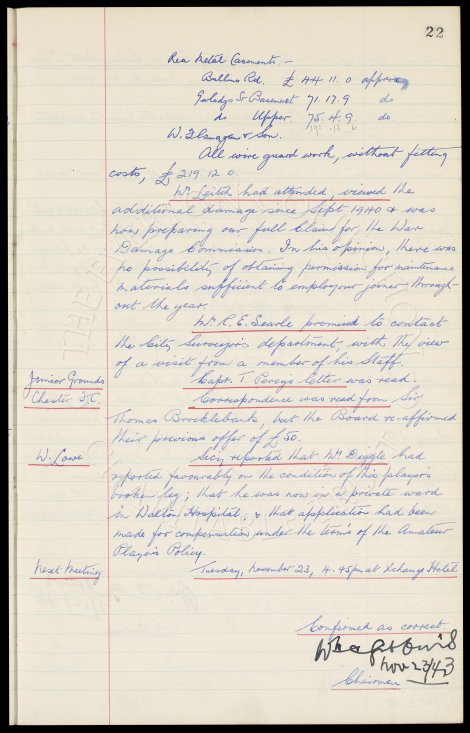 22
Rea Metal Casements:-
Bullns Rd. £ 44.11.0 approx,
Goladys St Basement 71.17.9 do
do Upper. 75.4.9. do
191.13.6
W. Flanagan & Son.
All wire guard work, without fitting
costs, £219.12.0.
Mr. Leitch had attended, viewed the
additional damage since Sept 1940 & was
now preparing our full Claim for the War
Damage Commission. In his opinion, there was
no possibility of obtaining permission for maintenance
materials sufficient to employ our joiner through-
out the year.
Mr. R. E. Searle promised to contact
the City Surveyor's department with the view
of a visit from a member of his Staff.
Junior Grounds
Capt. T. Percy's letter was read.
Chester F.C.
Correspondence was read from Sir
Thomas Brocklebank, but the Board re-affirmed
their previous offer of £50.
W. Lowe
Secy reported that Mr. Diggle had
reported favourably on the condition of this player's
broken leg; that he was now in a private ward
in Walton Hospital; & that application had been
made for compensation under the terms of the Amateur
Players Policy.
Next Meeting
Tuesday, November 23, 4.45pm at Xchange Hotel
Confirmed as correct.
Nov 23/43
Chairman